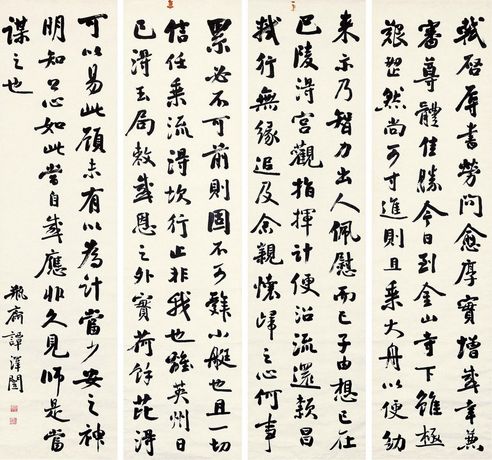 軾啓辱書勞問愈厚實增感幸兼
審尊體佳勝今日到金山寺下雖極
艱澀然尚可寸進則且乘大舟以便幼
累必不可前則固不可難小艇也且一切
信任乘流得坎行止非我也離英州日
已得玉局敕感恩之外實荷餘芘得
来示乃智力出人佩慰而已子由想已在
巴陵得宮觀指揮計便沿流還潁昌
軾行無緣追及余親懷歸之心何事
可以易此顧未有以為計當少安之神
明知吾心如此當自感應非久見師是當
謀之也
瓶齋譚澤闓